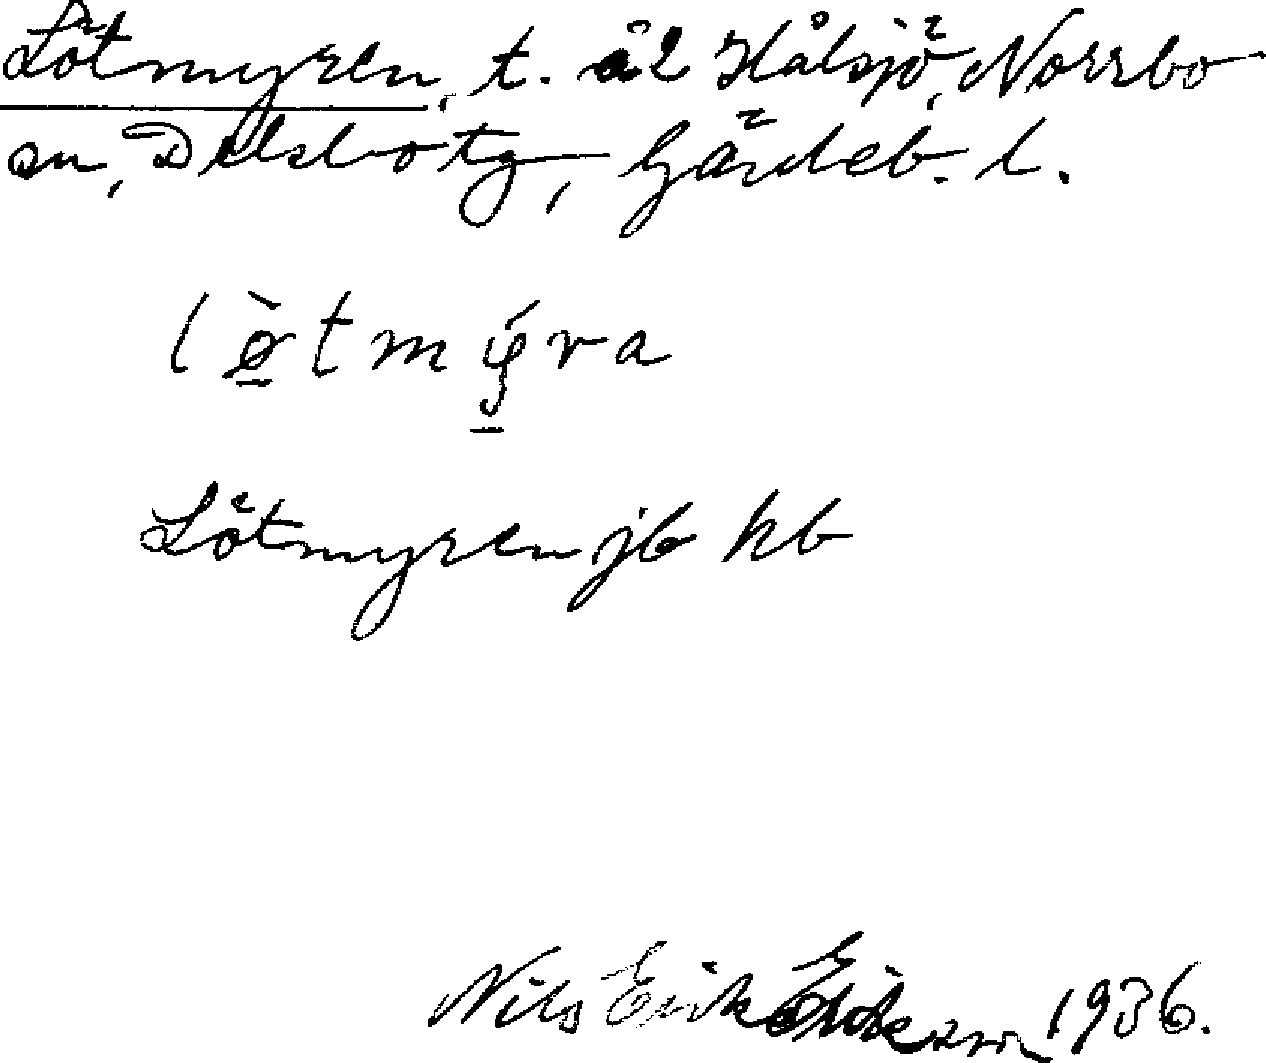 Lötmyren, t. å 2 Hålsjö, Norrbo
sn, Delsbo tg, Gävleb. l.
lø̀tmýra
Lötmyren jb kb
Nils Erik Eriksson 1936.